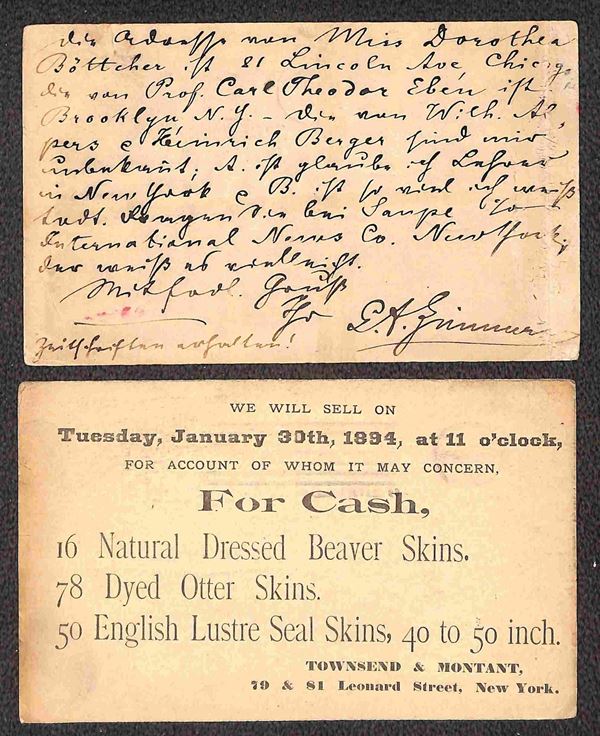 die Adresse von Miss Dorothea
Böttcher ist 81 Lincoln Ave, Chicago
die von Prof. Carl Theodor Eben ist
Brooklyn N.Y. – die von Wilh. Al-
pers & Heinrich Berger sind mir
unbekannt; A. ist glaube ich Lehrer
in New York & B. ist so viel ich weiß
todt. Fragen Sie bei Saupe
International News Co. New York,
der weiß es vielleicht.
Mit frdl. Gruß
Ihr
Zeitschriften erhalten!
WE WILL SELL ON
Tuesday, January 30th, 1894, at 11 o'clock,
FOR ACCOUNT OF WHOM IT MAY CONCERN,
For Cash,
16 Natural Dressed Beaver Skins.
78 Dyed Otter Skins.
50 English Lustre Seal Skins, 40 to 50 inch.
TOWNSEND & MONTANT,
79 & 81 Leonard Street, New York.